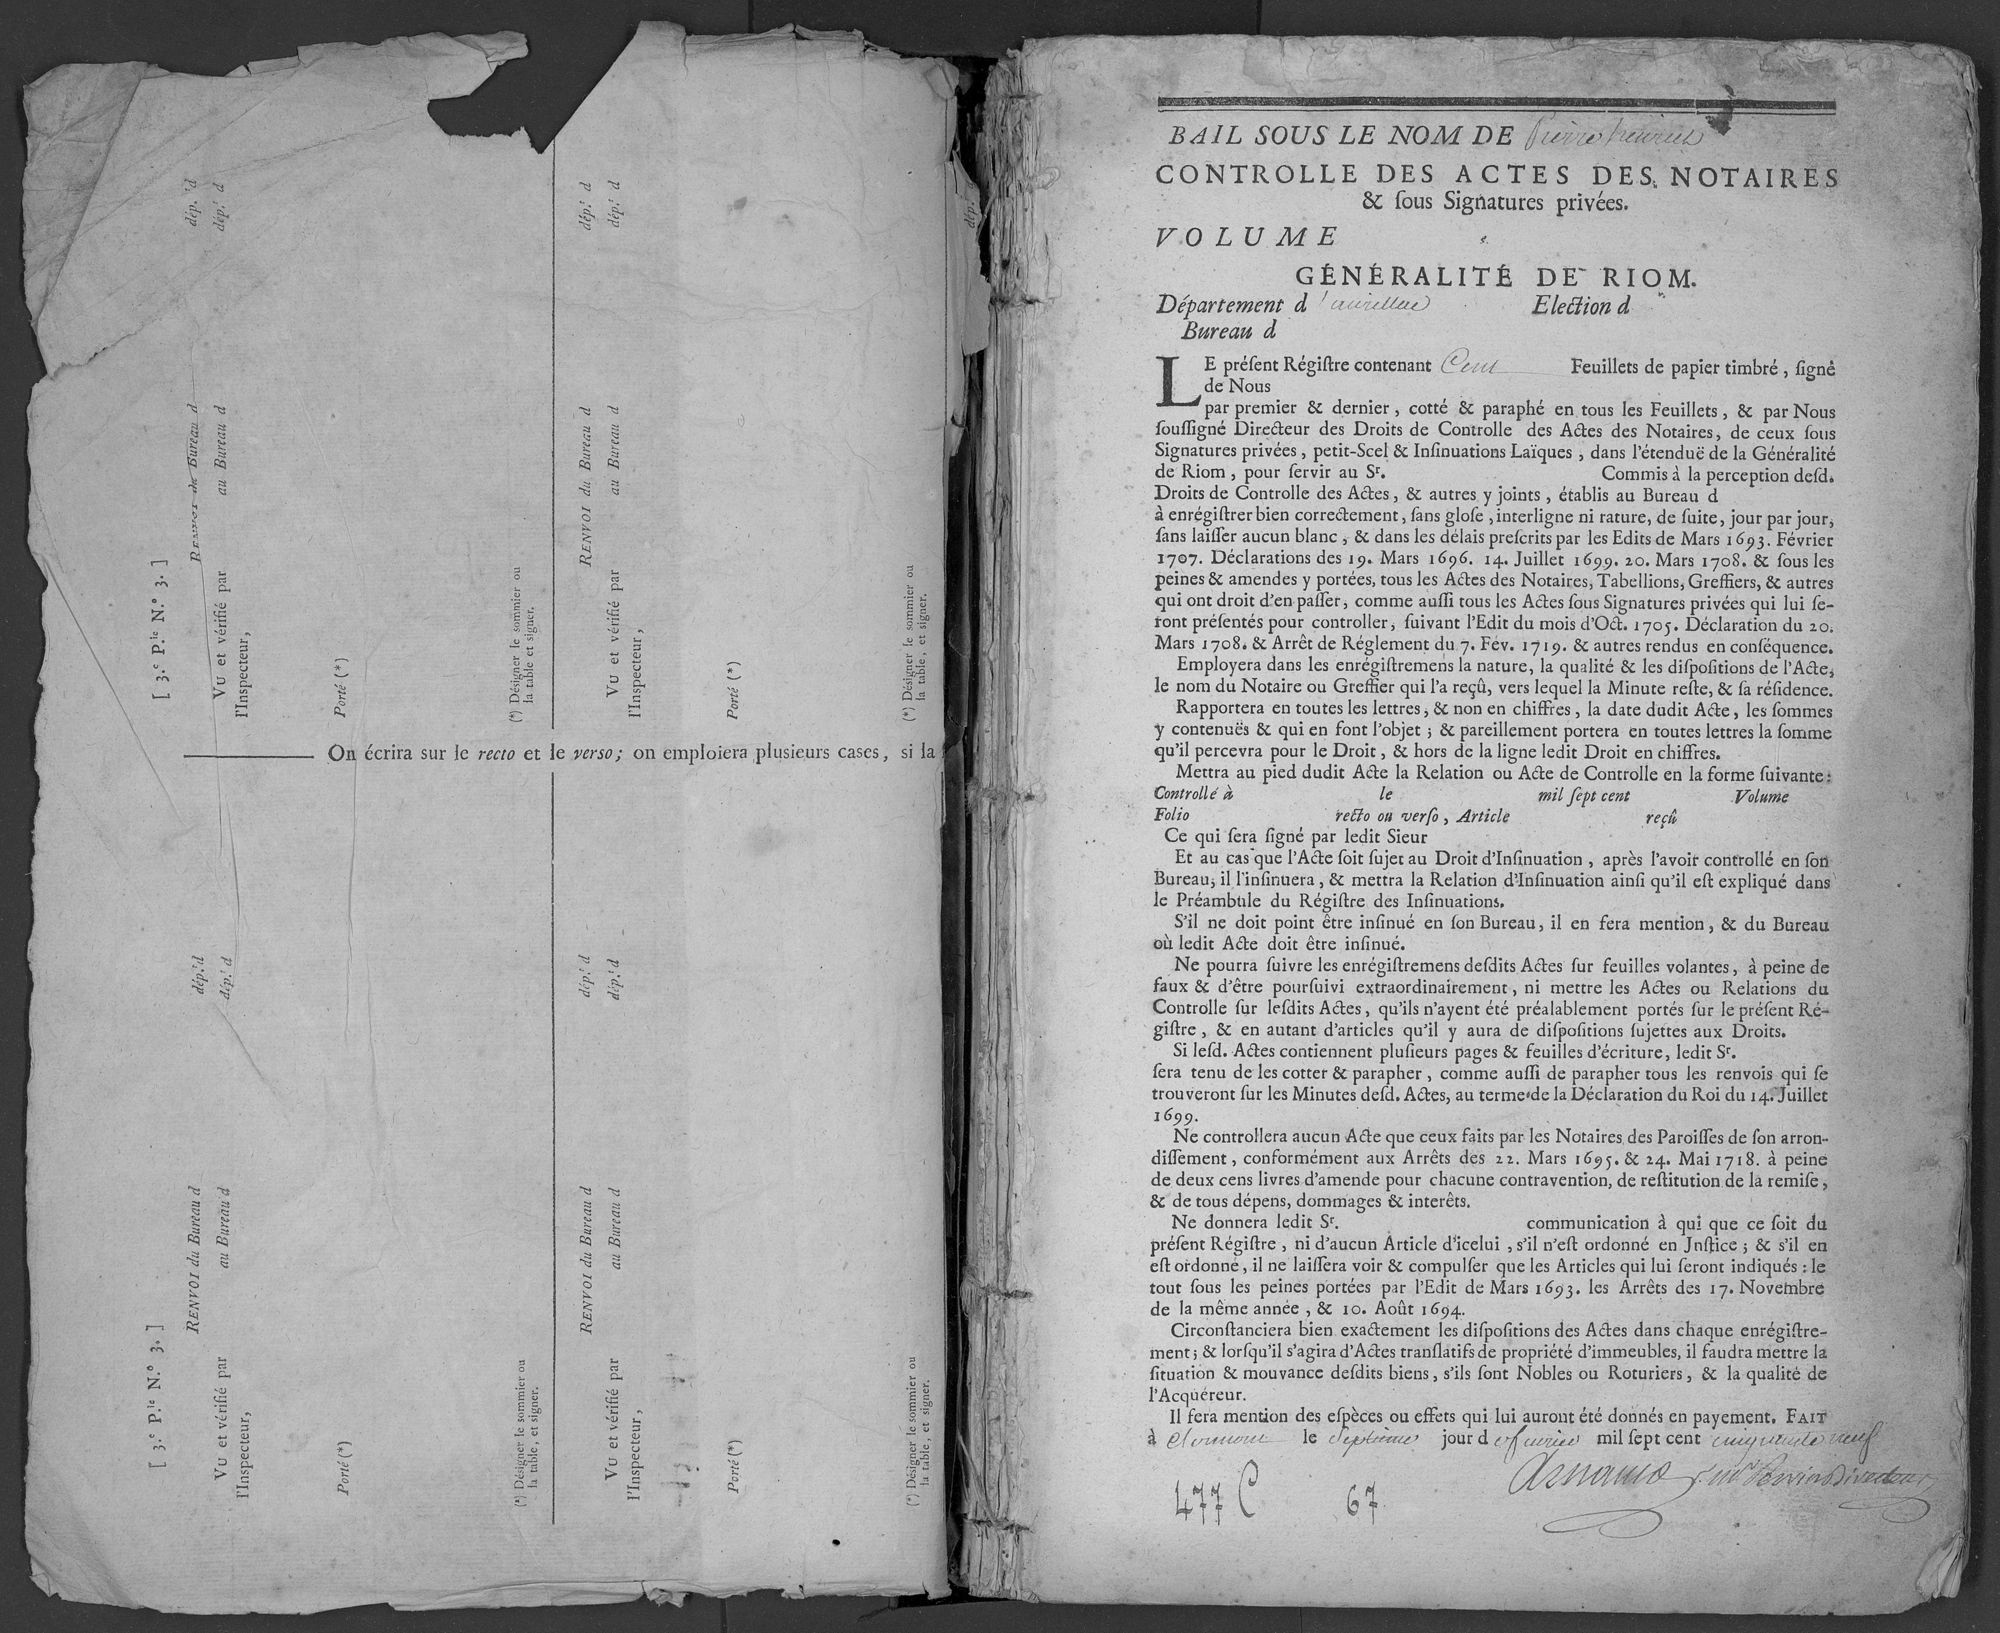 [ 3.e P.le N.o 3. ]
RENVOI du Bureau d dép.t d
au Bureau d dép.t d
Vu et vérifié par
l'Inspecteur,
Porté (*)
(*) Désigner le sommier ou
la table et signer.
RENVOI du Bureau d dép.t d
au Bureau d dép.t d
Vu et vérifié par
l'Inspecteur,
Porté (*)
(*) Désigner le sommier ou
la table, et signer.
dép.t
On écrira sur le recto et le verso; on emploiera plusieurs cases, si la
[ 3.e P.le N.o 3. ]
RENVOI du Bureau d dép.t d
au Bureau d dép.t d
Vu et vérifié par
l'Inspecteur,
Porté (*)
(*) Désigner le sommier ou
la table, et signer.
RENVOI du Bureau d dép.t d
au Bureau d dép.t d
Vu et vérifié par
l'Inspecteur,
Porté (*)
(*) Désigner le sommier ou
la table, et signer.
BAIL SOUS LE NOM DE Pierre henriet
CONTROLLE DES ACTES DES NOTAIRES
& ſous Signatures privées.
VOLUME
GÉNÉRALITÉ DE RIOM.
Département d'aurillac Election d
Bureau d
LE préſent Régiſtre contenant Cent Feuillets de papier timbré, ſigné
de Nous
par premier & dernier, cotté & paraphé en tous les Feuillets, & par Nous
ſouſſigné Directeur des Droits de Controlle des Actes des Notaires, de ceux ſous
Signatures privées, petit-Scel & Inſinuations Laïques, dans l'étenduë de la Généralité
de Riom, pour ſervir au Sr. Commis à la perception deſd.
Droits de Controlle des Actes, & autres y joints, établis au Bureau d
à enrégiſtrer bien correctement, ſans gloſe, interligne ni rature, de ſuite, jour par jour,
ſans laiſſer aucun blanc, & dans les délais preſcrits par les Edits de Mars 1693. Février
1707. Déclarations des 19. Mars 1696. 14. Juillet 1699. 20. Mars 1708. & ſous les
peines & amendes y portées, tous les Actes des Notaires, Tabellions, Greffiers, & autres
qui ont droit d'en paſſer, comme auſſi tous les Actes ſous Signatures privées qui lui ſe-
ront préſentés pour controller, ſuivant l'Edit du mois d'Oct. 1705. Déclaration du 20.
Mars 1708. & Arrêt de Réglement du 7. Fév. 1719. & autres rendus en conſéquence.
Employera dans les enrégiſtremens la nature, la qualité & les diſpoſitions de l'Acte,
le nom du Notaire ou Greffier qui l'a reçû, vers lequel la Minute reſte, & ſa réſidence.
Rapportera en toutes les lettres, & non en chiffres, la date dudit Acte, les ſommes
y contenuës & qui en font l'objet; & pareillement portera en toutes lettres la ſomme
qu'il percevra pour le Droit, & hors de la ligne ledit Droit en chiffres.
Mettra au pied dudit Acte la Relation ou Acte de Controlle en la forme ſuivante:
Controllé à le mil ſept cent Volume
Folio recto ou verſo, Article reçû
Ce qui ſera ſigné par ledit Sieur
Et au cas que l'Acte ſoit ſujet au Droit d'Inſinuation, après l'avoir controllé en ſon
Bureau, il l'inſinuera, & mettra la Relation d'Inſinuation ainſi qu'il eſt expliqué dans
le Préambule du Régiſtre des Inſinuations.
S'il ne doit point être inſinué en ſon Bureau, il en fera mention, & du Bureau
où ledit Acte doit être inſinué.
Ne pourra ſuivre les enrégiſtremens deſdits Actes ſur feuilles volantes, à peine de
faux & d'être pourſuivi extraordinairement, ni mettre les Actes ou Relations du
Controlle ſur leſdits Actes, qu'ils n'ayent été préalablement portés ſur le préſent Ré-
giſtre, & en autant d'articles qu'il y aura de diſpoſitions ſujettes aux Droits.
Si leſd. Actes contiennent pluſieurs pages & feuilles d'écriture, ledit Sr.
ſera tenu de les cotter & parapher, comme auſſi de parapher tous les renvois qui ſe
trouveront ſur les Minutes deſd. Actes, au terme de la Déclaration du Roi du 14. Juillet
1699.
Ne controllera aucun Acte que ceux faits par les Notaires des Paroiſſes de ſon arron-
diſſement, conformément aux Arrêts des 22. Mars 1695. & 24. Mai 1718. à peine
de deux cens livres d'amende pour chacune contravention, de reſtitution de la remiſe,
& de tous dépens, dommages & interêts.
Ne donnera ledit Sr. communication à qui que ce ſoit du
préſent Régiſtre, ni d'aucun Article d'icelui, s'il n'eſt ordonné en Jnſtice; & s'il en
eſt ordonné, il ne laiſſera voir & compulſer que les Articles qui lui ſeront indiqués: le
tout ſous les peines portées par l'Edit de Mars 1693. les Arrêts des 17. Novembre
de la même année, & 10. Août 1694.
Circonſtanciera bien exactement les diſpoſitions des Actes dans chaque enrégiſtre-
ment; & lorſqu'il s'agira d'Actes tranſlatifs de propriété d'immeubles, il faudra mettre la
ſituation & mouvance deſdits biens, s'ils ſont Nobles ou Roturiers, & la qualité de
l'Acquéreur.
Il fera mention des eſpèces ou effets qui lui auront été donnés en payement. FAIT
à Clermont le Septieme jour de fevrier mil ſept cent cinquante neuf
Directeur
477 C 67